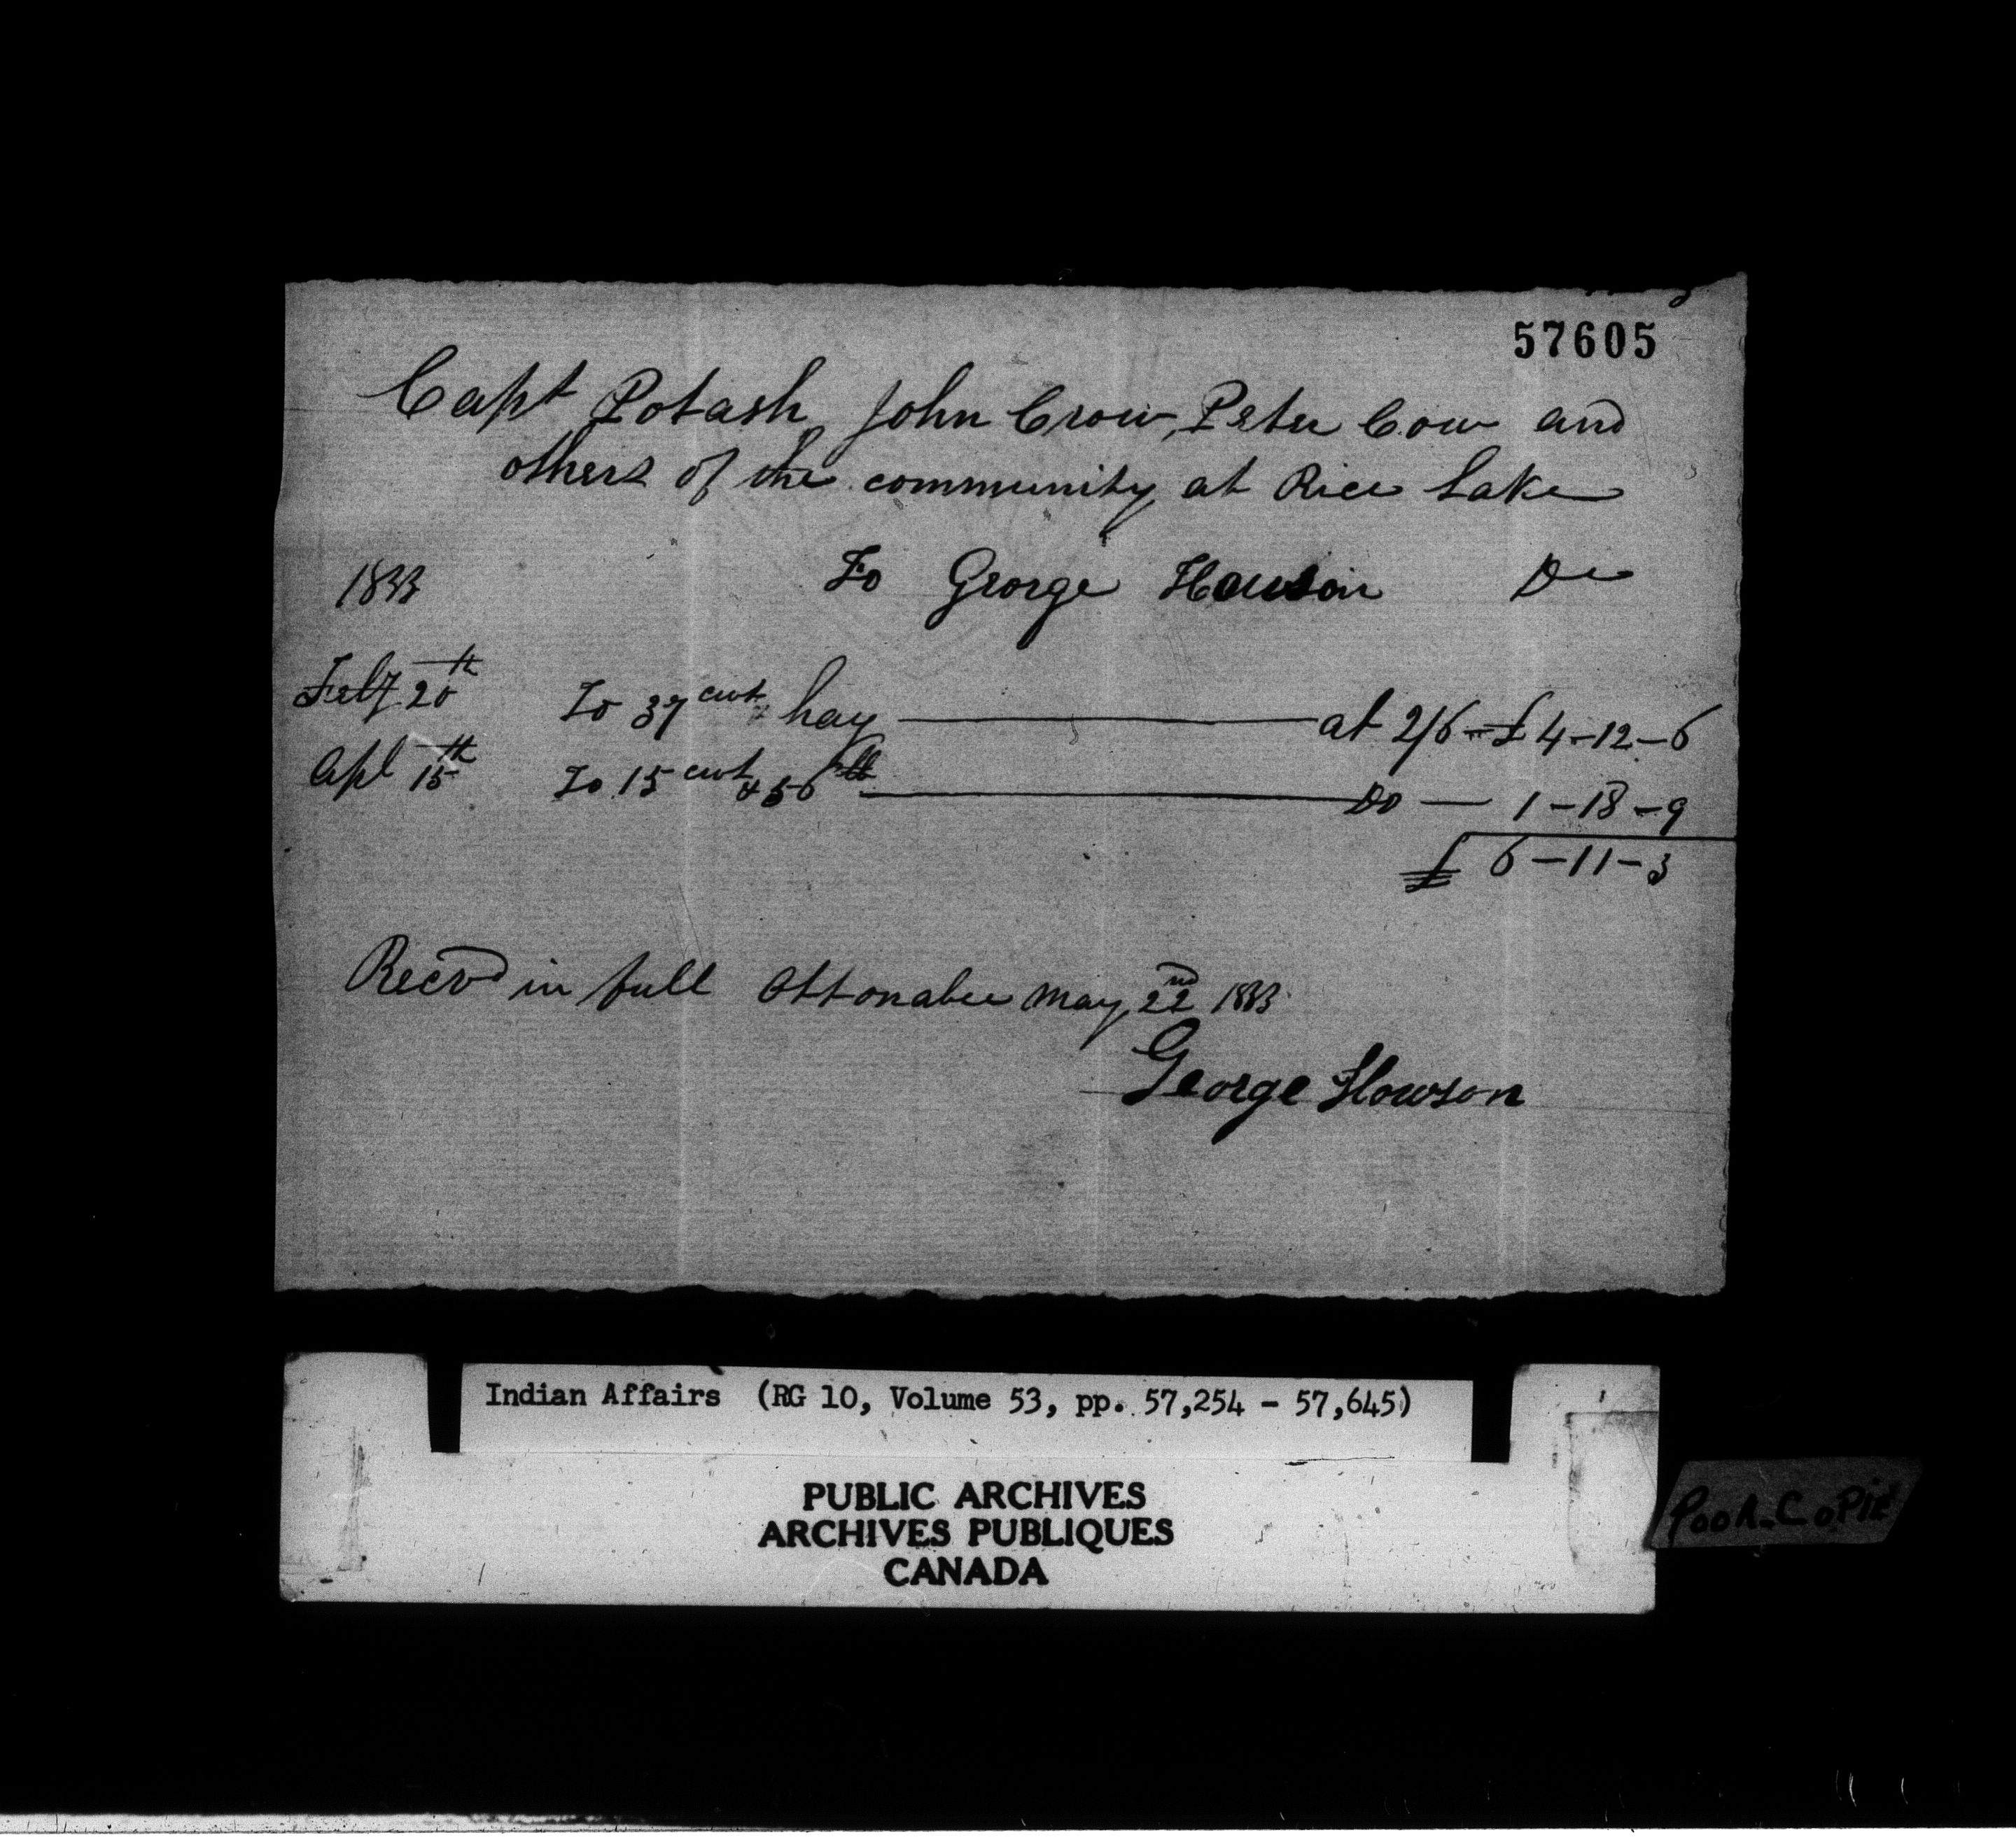 57605
Capt Potash, John Crow, Peter Cow and
others of the community at Rice Lake
1833 To George Howson Dr
Feby 20th To 37 cwt hay at 2/6 - £ 4-12-6
Apl 15th To 15 cwt & 56 lb Do - 1-18-9
£ 6-11-3
Recvd in full Ottonabee May 22nd 1833
George Howson
Indian Affairs (RG 10, Volume 53, pp. 57,254 - 57,645)
PUBLIC ARCHIVES
ARCHIVES PUBLIQUES
CANADA
Poor Copie